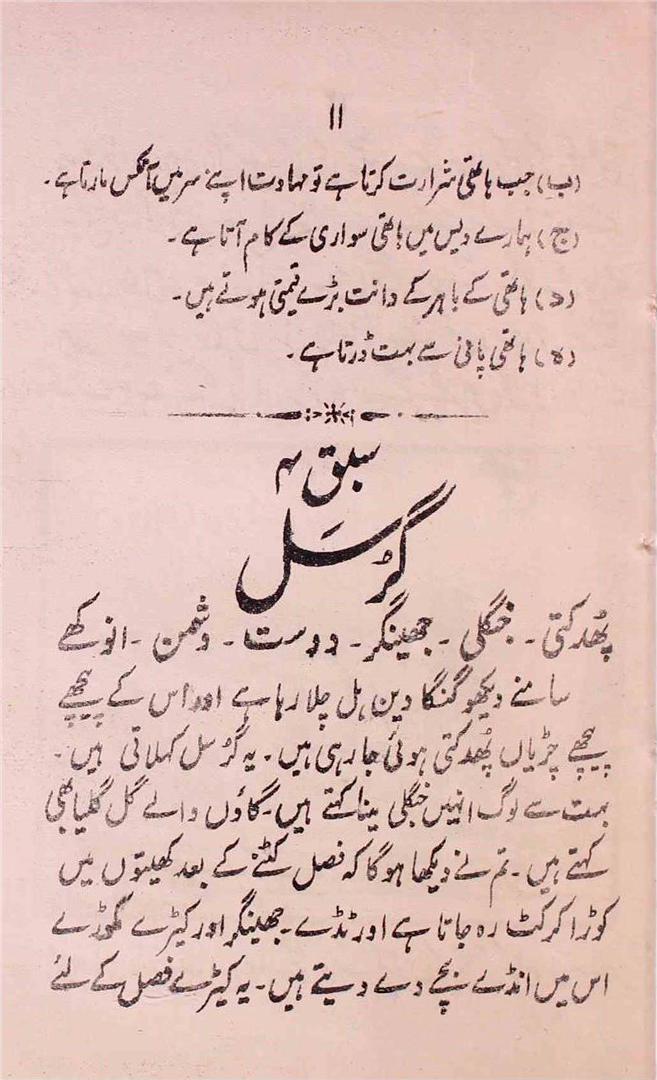 ۱۱
(ب) جب ہاتھی شرارت کرتا ہے تو مہاوت اپنے سر میں آنکس مارتا ہے۔
(ج) ہمارے دیس میں ہاتھی سواری کے کام آتا ہے۔
(د) ہاتھی کے باہر کے دانت بڑے قیمتی ہوتے ہیں۔
(ہ) ہاتھی پانی سے بہت ڈرتا ہے۔
سبق ۴
گڑسَل
پُھدکتی ۔ جنگلی ۔ جھینگر ۔ دوست ۔ دشمن ۔ انوکھے
سامنے دیکھو گنگا دین ہل چلا رہا ہے اور اس کے پیچھے
پیچھے چڑیاں پُھدکتی ہوئی جا رہی ہیں۔ یہ گڑسل کہلاتی ہیں۔
بہت سے لوگ انہیں جنگلی مینا کہتے ہیں۔ گاؤں والے گل گلیا بھی
کہتے ہیں۔ تم نے دیکھا ہوگا کہ فصل کٹنے کے بعد کھیتوں میں
کوڑا کرکٹ رہ جاتا ہے اور ٹڈے۔ جھینگر اور کیڑے مکوڑے
اس میں انڈے بچے دے دیتے ہیں۔ یہ کیڑے فصل کے لئے